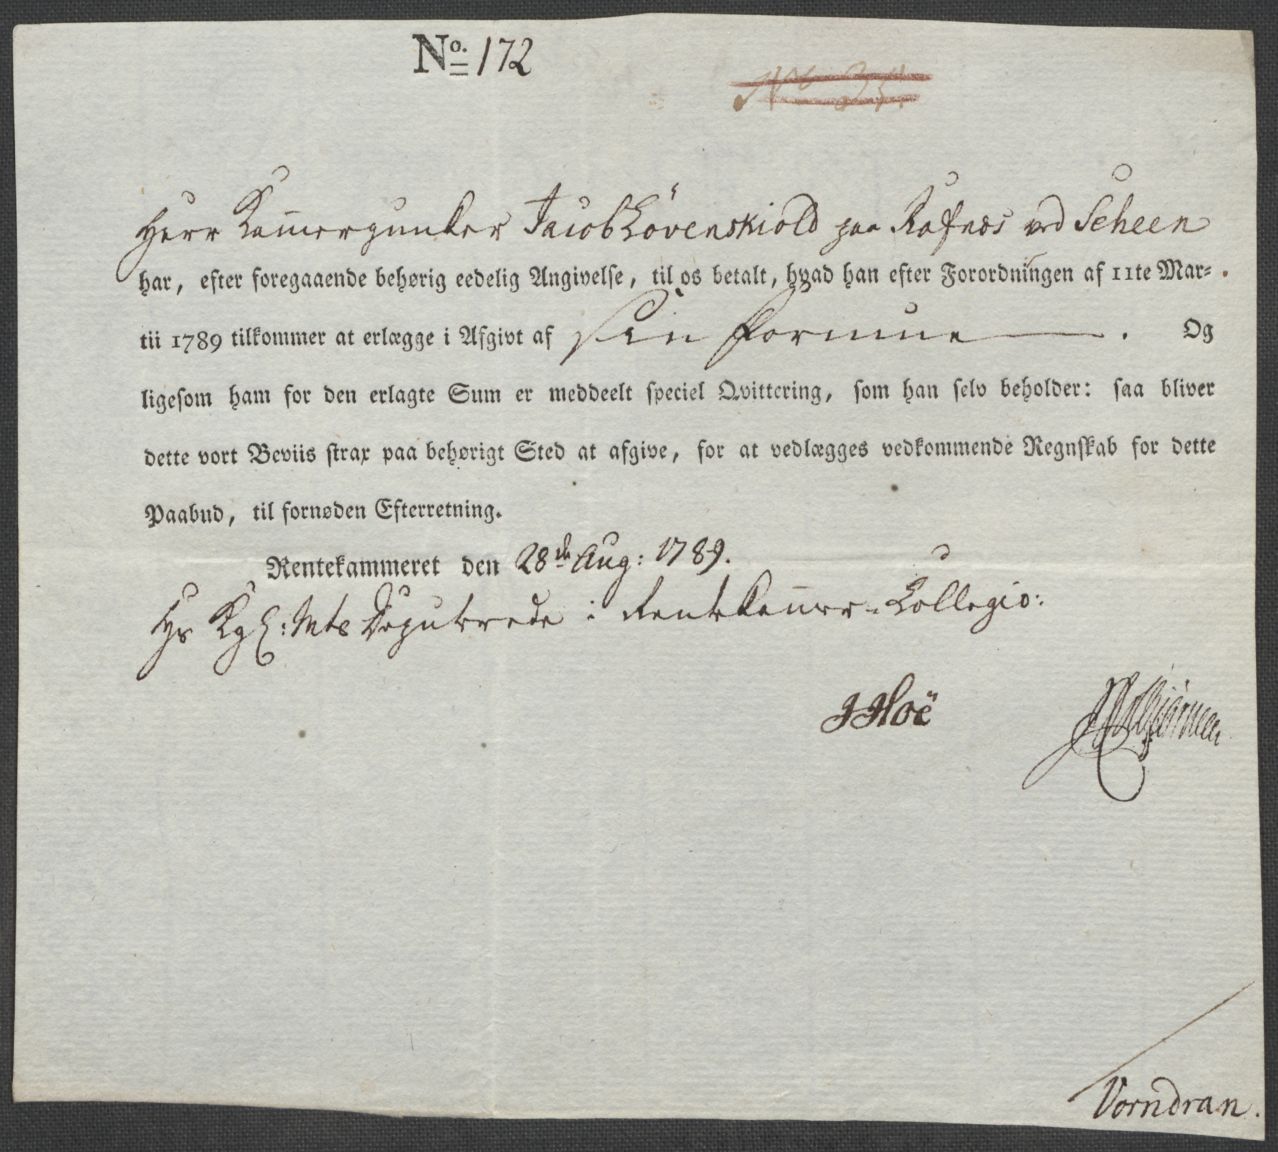 No. 172
Herr Kammerjunker Jacob Løvenskiold paa Rafnøs ved Scheen
har, efter foregaaende behørig eedelig Angivelse, til os betalt, hvad han efter Forordningen af 11te Mar-
tii 1789 tilkommer at erlægge i Afgivt af sin Formue. Og
ligesom ham for den erlagte Sum er meddeelt speciel Qvittering, som han selv beholder: saa bliver
dette vort Beviis strax paa behørigt Sted at afgive, for at vedlægges vedkommende Regnskab for dette
Paabud, til fornøden Efterretning.
Rentekammeret den 28de Aug: 1789.
Hs Kgl: Mts Deputerede i Rentekammer-Collegio:
J Hoë
Vorndran.